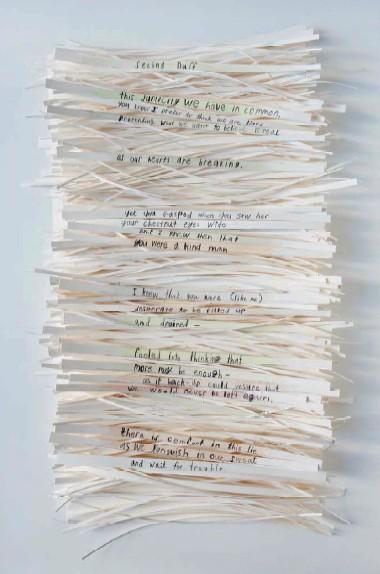 Second Puff
this January we have in common,
you know I prefer to think we are
pretending what we want to believe is real
as our hearts are breaking.
yet you gasped when you saw her
your chestnut eyes wide
and I knew then that
you were a kind man
I knew that you were (like me)
desperate to be filled up
and drained —
fooled into thinking that
more may be enough —
as if back-up could insure that
we would never be left again.
there is comfort in this lie
as we languish in our sweat
and wait for trouble.